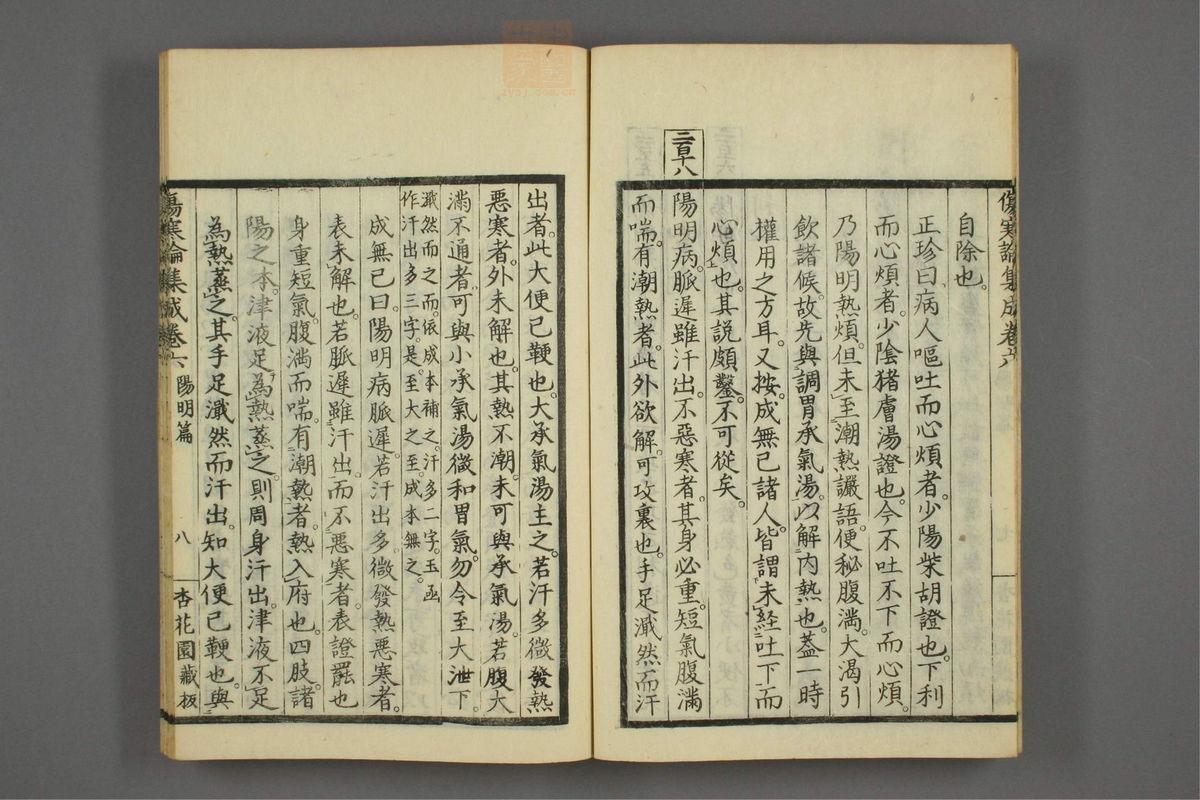 傷寒論集成卷六
自除也。
正珍曰病人嘔吐而心煩者。少陽柴胡證也。下利
而心煩者。少陰猪膚湯證也。今不吐不下而心煩。
乃陽明熱煩。但未至潮熱讝語。便秘腹滿。大渴引
飲諸候。故先與調胃承氣湯。以解內熱也。蓋一時
權用之方耳。又按。成無已諸人。皆謂未經吐下而
心煩也。其說頗鑿。不可從矣。
二百十八
陽明病。脈遲雖汗出。不惡寒者。其身必重。短氣腹滿
而喘。有潮熱者。此外欲解。可攻裏也。手足濈然而汗
出者。此大便已鞕也。大承氣湯主之。若汗多微發熱
惡寒者。外未解也。其熱不潮。未可與承氣湯。若腹大
滿不通者。可與小承氣湯。微和胃氣。勿令至大泄下。
濈然而之而。依成本補之。汗多二字。玉函
作汗出多三字。是。至大之至。成本無之。
成無已曰。陽明病脈遲。若汗出多。微發熱惡寒者。
表未解也。若脈遲雖汗出。而不惡寒者。表證罷也
身重短氣。腹滿而喘。有潮熱者。熱入府也。四肢諸
陽之本。津液足。為熱蒸之。則周身汗出。津液不足
為熱蒸之。其手足濈然而汗出。知大便已鞕也。與
傷寒論集成卷六 陽明篇 八 杏花園藏板
zysj.com.cn